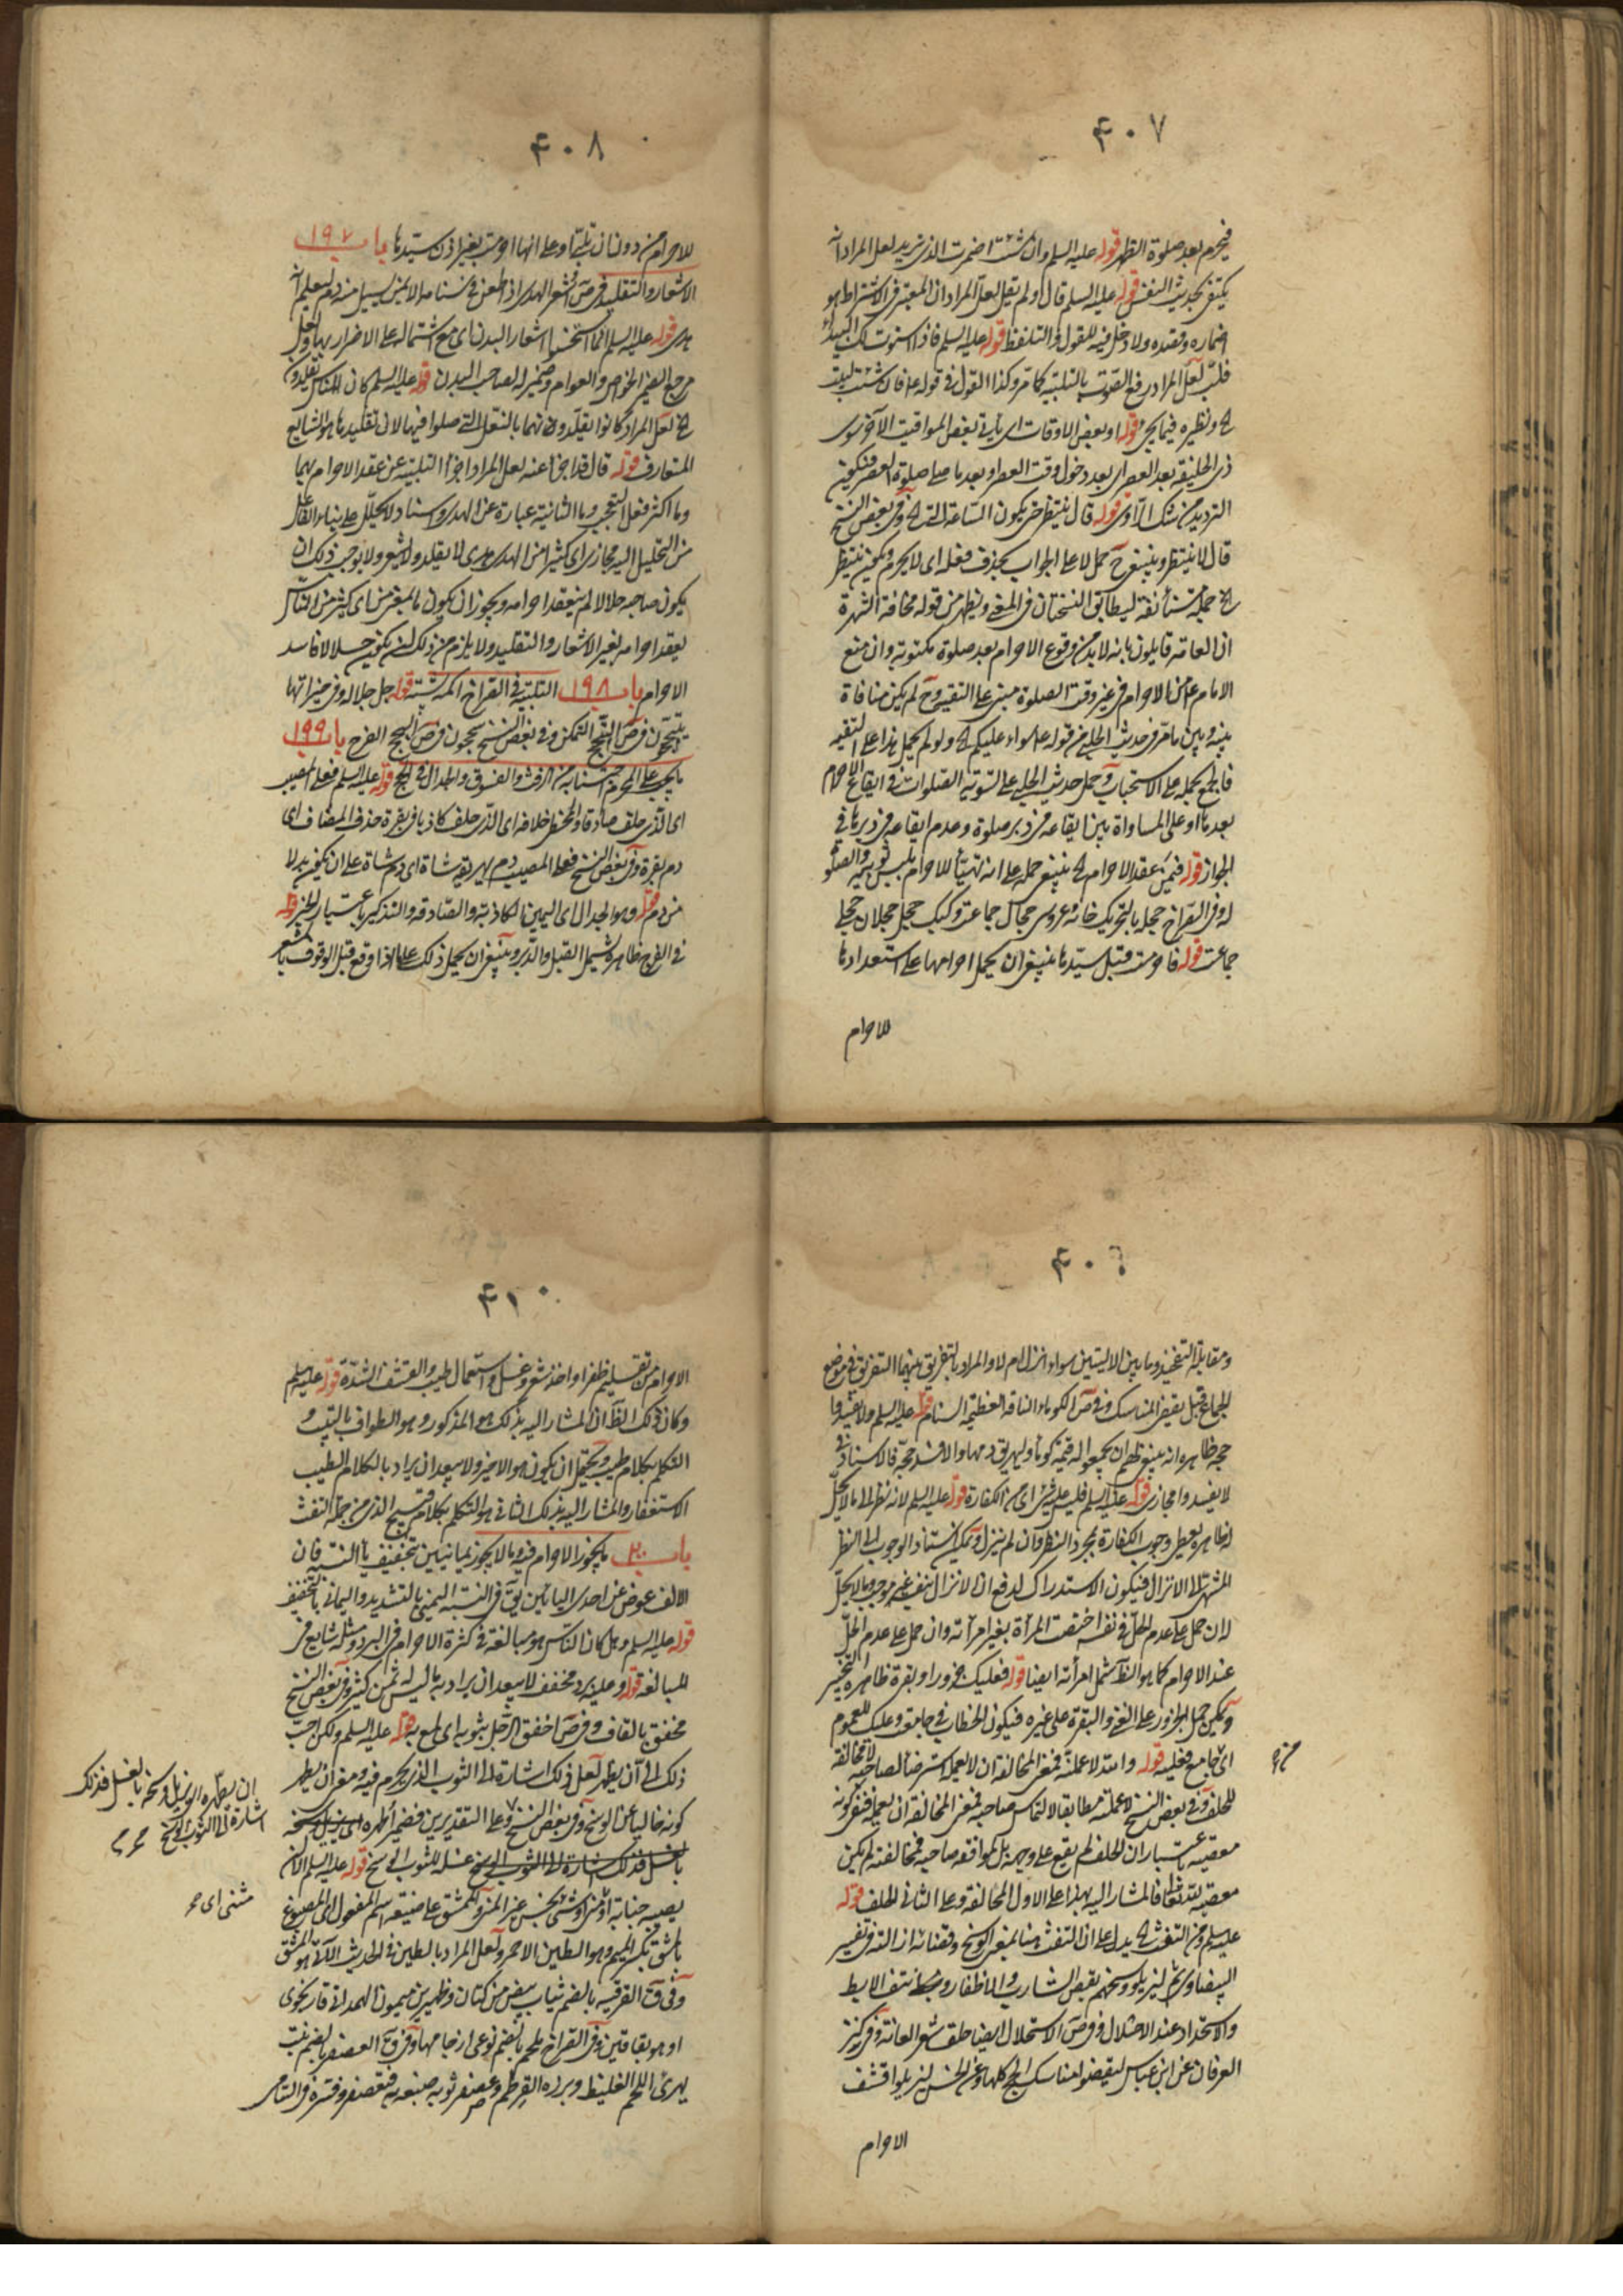 ٤٠٧
فيحرم بعد صلوة الظهر قوله عليه السلم وان شئت اضمرت الذي تريد لعل المراد انه
يكتفى بحديث النفس قوله عليه السلم قال ولم يقل لعل المراد ان المعتبر في الاشتراط هو
اضماره وقصده ولا دخل فيه للقول والتلفظ قوله عليه السلم فاذا استوت بك البيداء
فلب لعل المراد رفع الصوت بالتلبية كما مر وكذا القول في قوله فان شئت لبيت
الخ ونظيره فيما يجئ قوله او بعض الاوقات اى يأتي بعض المواقيت الآخر سوى
ذي الحليفة بعد العصر اى بعد دخول وقت العصر او بعد ما صلى صلوة العصر فيكون
الترديد من شك الراوى قوله قال ينتظر حتى يكون الساعة التي الخ وفي بعض النسخ
قال لا ينتظر وينبغي ح حمل لا على الجواب بحذف فعله اى لا يحرم ويكون ينتظر
الخ جملة مستأنفة ليطابق النسختان في المعنى ويظهر من قوله مخافة الشهرة
ان العامة قايلون بانه لا بد من وقوع الاحرام بعد صلوة مكتوبة وان منع
الامام ع من الاحرام في غير وقت الصلوة مبني على التقية وح لم يكن منافاة
بينه وبين ما مر في حديث الحلبي من قوله ع سواء عليكم الخ ولو لم يحمل هذا على التقية
فالجمع بحمله على الاستحباب وحمل حديث الحلبي على تسوية الصلوات في ايقاع الاحرام
بعدها او على المساواة بين ايقاعه في دبر صلوة وعدم ايقاعه في دبرها في
الجواز قوله فيمن عقد الاحرام الخ ينبغي حمله على انه تهيأ للاحرام بلبس ثوبيه والصلوة
له وفي القراح حجله بالتحريك خانه عروس حجال جماعة وكبك حجل حجلان حجلى
جماعت قوله فاحرمت قبل سيدها ينبغي ان يحمل احرامها على استعدادها
للاحرام
٤٠٨
للاحرام من دون ان تلبى او على انها احرمت بغير اذن سيدها باب ١٩٧
الاشعار والتقليد في ص اشعر الهدى اذا طعن في سنامه الايمن حتى يسيل منه دم ليعلم انه
هدى قوله عليه السلم انما استحسنوا اشعار البدن اى مع اشتماله على الاضرار بها ولعل
مرجع الضمير الخواص والعوام وضمير له لصاحب البدن قوله عليه السلم كان الناس يقلدون
الخ لعل المراد كانوا يقلدونهما بالنعل التي صلوا فيها لان تقليدها هو الشايع
المتعارف قوله قال قد اجزأ عنه لعل المراد اجزأ التلبية عن عقد الاحرام بهما
وما اكثر فعل التعجب وما الثانية عبارة عن الهدى واسناد لا يحلل على بناء الفاعل
من التحليل اليه مجازى اى كثيرا من الهدى هدى لا يقلد ولا يشعر ولا يوجب ذلك ان
يكون صاحبه حلالا لم ينعقد احرامه ويجوز ان يكون ما بمعنى من اى كثير من الناس
يعقد احرامه بغير الاشعار والتقليد ولا يلزم من ذلك ان يكون حلالا فاسد
الاحرام باب ١٩٨ التلبية في القراح اكمه پشته قوله جل جلاله وفي خيراتها
يتبحبحون في ص التبحبح التمكن وفي بعض النسخ يبجحون في ص البجح الفرح باب ١٩٩
ما يجب على المحرم اجتنابه من الرفث والفسوق والجدال في الحج قوله عليه السلم فعلى المصيب
اى الذي حلف صادقا وللمخطى خلافه اى الذي حلف كاذبا في بقرة حذف المضاف اى
دم بقرة وفي بعض النسخ فعلى المصيب دم يهريقه شاة اى دم شاة على ان يكون بدلا
من دم قوله وهو الجدال اى اليمين الكاذبة والصادقة والتذكير باعتبار الخبر قوله
في الفرج ظاهره يشمل القبل والدبر وينبغي ان يحمل ذلك على ما اذا وقع قبل الوقوف بالمشعر
٤٠٩
ومقابلة التفخيذ وما بين الاليتين سواء انزل ام لا والمراد بالتفريق بينهما التفريق في موضع
الجماع قبل بقيض المناسك وفي ص الكوماء الناقة العظيمة السنام قوله عليه السلم ولا يفسدوا
حجه ظاهره انه ينبغي لهم ان يجمعوا له قيمة كوماء وليهريق دمها والا فسد حجه فالاسناد في
لا يفسدوا مجازى قوله عليه السلم فليس عليه شئ اى من الكفارة قوله عليه السلم لانه نظر الى ما لا يحل
له ظاهره يعطى وجوب الكفارة بمجرد النظر وان لم ينزل ويمكن اسناد الوجوب الى النظر
المنتهى الى الانزال فيكون الاستدراك لدفع ان الانزال بنفسه غير موجب وما لا يحل
له ان حمل على عدم الحل في نفسه اختصت المرأة بغير امرأته وان حمل على عدم الحل
عند الاحرام كما هو الظ شمل امرأته ايضا قوله فعليك جزور او بقرة ظاهره التخيير
ويمكن حمل الجزور على الغنى والبقرة على غيره فيكون الخطاب في جامعت وعليك للعموم
اى من جامع فعليه قوله وامتد لا عملته فمعنى المخالفة ان لا يعمل استرضاء لصاحبه لا مخالفة
من ره
للحلف وفي بعض النسخ لاعملنه مطابقا لالتماس صاحبه فمعنى المخالفة ان يعمله فنفى كونه
معصية باعتبار ان الحلف لم يقع على وجهه بل لموافقة صاحبه فمخالفته لم يكن
معصية لله تعا فالمشار اليه بهذا على الاول المخالفة وعلى الثاني الحلف قوله
عليه السلم ومن التفث الخ يدل على ان التفث هنا بمعنى الوسخ وقضائه ازالته وفي تفسير
البيضاوى ثم ليزيلوا وسخهم بقص الشارب والاظفار ونتف الابط
والاستحداد عند الاحلال وفي ص الاستحلال ايضا حلق شعر العانة وفي كنز
العرفان عن ابن عباس ليقضوا مناسك الحج كلها وعن الحسن ليزيلوا قشف
الاحرام
٤١٠
الاحرام من تقليم ظفر او اخذ شعر وغسل واستعمال طيب والقشف الشدة قوله عليه السلم
وكان ذلك الظ ان المشار اليه بذلك هو المذكور وهو الطواف بالبيت و
التكلم بكلام طيب ويحتمل ان يكون هو الاخير ولا يبعد ان يراد بالكلام الطيب
الاستغفار والمشار اليه بذلك الثاني هو التكلم بكلام قبيح الذي من جملة التفث
باب ٢٠٠ ما يجوز الاحرام فيه وما لا يجوز يمانيين بتخفيف يا النسبة فان
الالف عوض عن احدى اليائين يق في النسبة اليمني بالتشديد واليماني بالتخفيف
قوله عليه السلم وهل كان الناس هو مبالغة في كثرة الاحرام في البرد ومثله شايع في
المبالغة قوله وعليه برد مخفف لا يبعد ان يراد به ما ليس له ثمن كثير وفي بعض النسخ
مخفق بالقاف وفي ص اخفق الرجل بثوبه اى لمع به قوله عليه السلم ولكن احب
ذلك الى ان يطهر لعل ذلك اشارة الى الثوب الذي يحرم فيه ومعنى ان يطهر
كونه خاليا عن الوسخ وفي بعض النسخ وعلى التقديرين فضمير
ان يطهره اى يزيل وسخه بالغسل فذلك
اشارة الى الثوب الوسخ
غسله للثوب الوسخ قوله عليه السلم الا ان
يصيبه جنابة او شئ بنجس غير المنى والممشق على صيغة اسم المفعول اى المصبوغ
بالمشق بكسر الميم وهو الطين الاحمر ولعل المراد بالطين في الحديث الآتي هو المشق
وفي ق القرقبية بالضم ثياب بيض من كتان وظهير بن ميمون الهمداني قارى نحوى
او هو بقافين وفي القراح ملحم بالضم نوعى از جامها وفي ق العصفر بالضم نبت
يهرئ اللحم الغليظ وبزره القرطم وعصفر ثوبه صبغه به فتعصفر وفسره في التاج